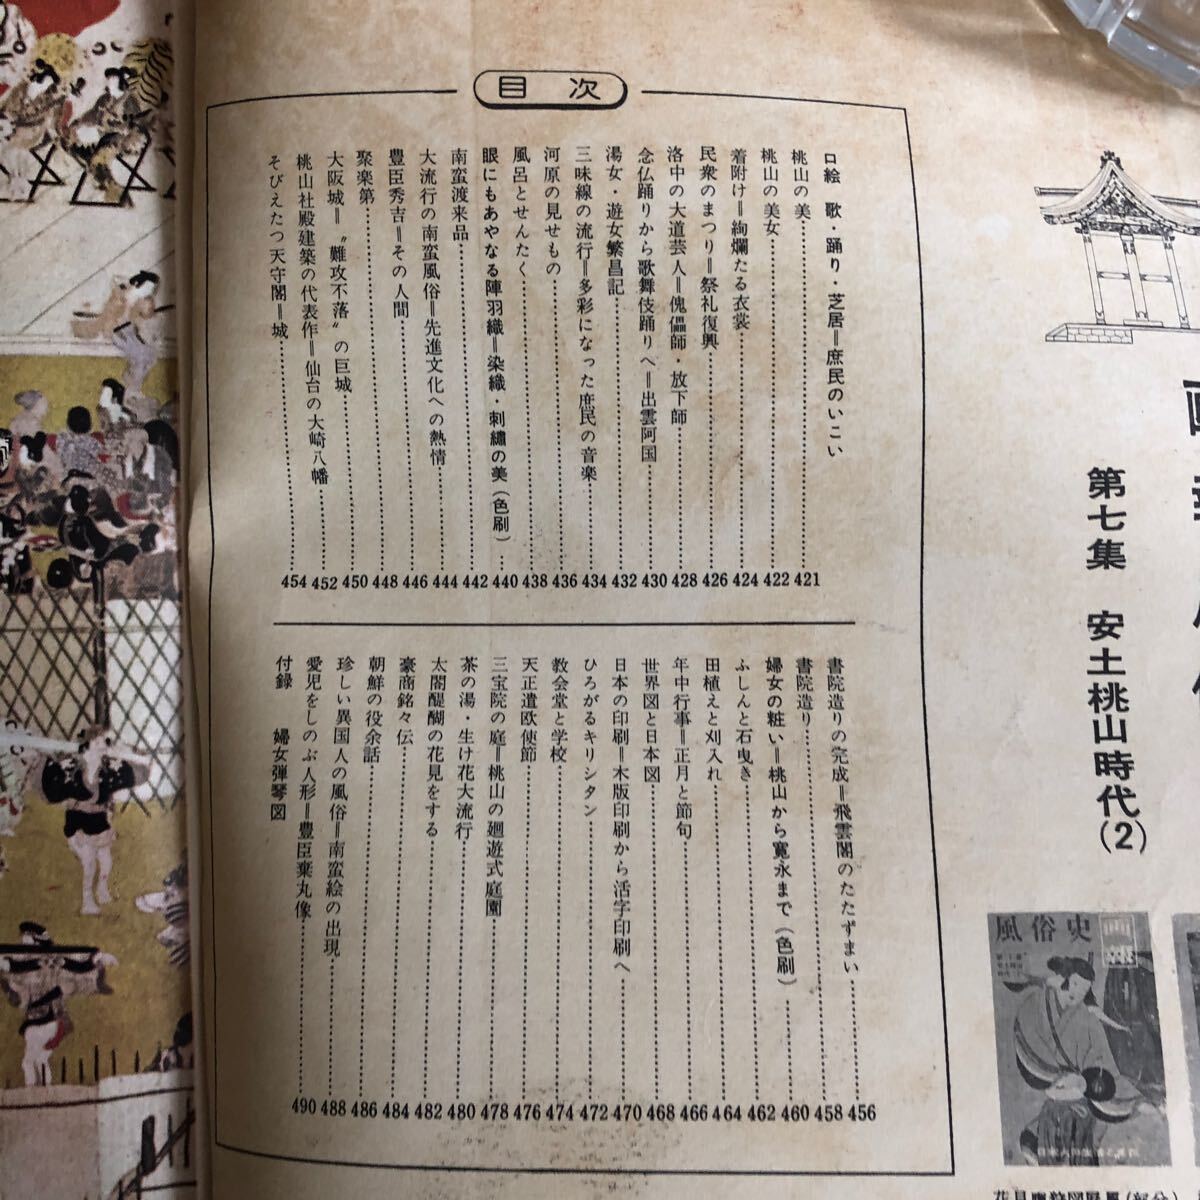 第七集 安土桃山時代(2)
風俗史
画報
目次
口絵 歌・踊り・芝居＝庶民のいこい
桃山の美……421
桃山の美女……422
着附け＝絢爛たる衣裳……424
民衆のまつり＝祭礼復興……426
洛中の大道芸人＝傀儡師・放下師……428
念仏踊りから歌舞伎踊りへ＝出雲阿国……430
湯女・遊女繁昌記……432
三味線の流行＝多彩になった庶民の音楽……434
河原の見せもの……436
風呂とせんたく……438
眼にもあやなる陣羽織＝染織・刺繡の美(色刷)……440
南蛮渡来品……442
大流行の南蛮風俗＝先進文化への熱情……444
豊臣秀吉＝その人間……446
聚楽第……448
大阪城＝〝難攻不落〟の巨城……450
桃山社殿建築の代表作＝仙台の大崎八幡……452
そびえたつ天守閣＝城……454
書院造りの完成＝飛雲閣のたたずまい……456
書院造り……458
婦女の粧い＝桃山から寛永まで(色刷)……460
ふしんと石曳き……462
田植えと刈入れ……464
年中行事＝正月と節句……466
世界図と日本図……468
日本の印刷＝木版印刷から活字印刷へ……470
ひろがるキリシタン……472
教会堂と学校……474
天正遣欧使節……476
三宝院の庭＝桃山の廻遊式庭園……478
茶の湯・生け花大流行……480
太閤醍醐の花見をする……482
豪商銘々伝……484
朝鮮の役余話……486
珍しい異国人の風俗＝南蛮絵の出現……488
愛児をしのぶ人形＝豊臣棄丸像……490
付録 婦女弾琴図